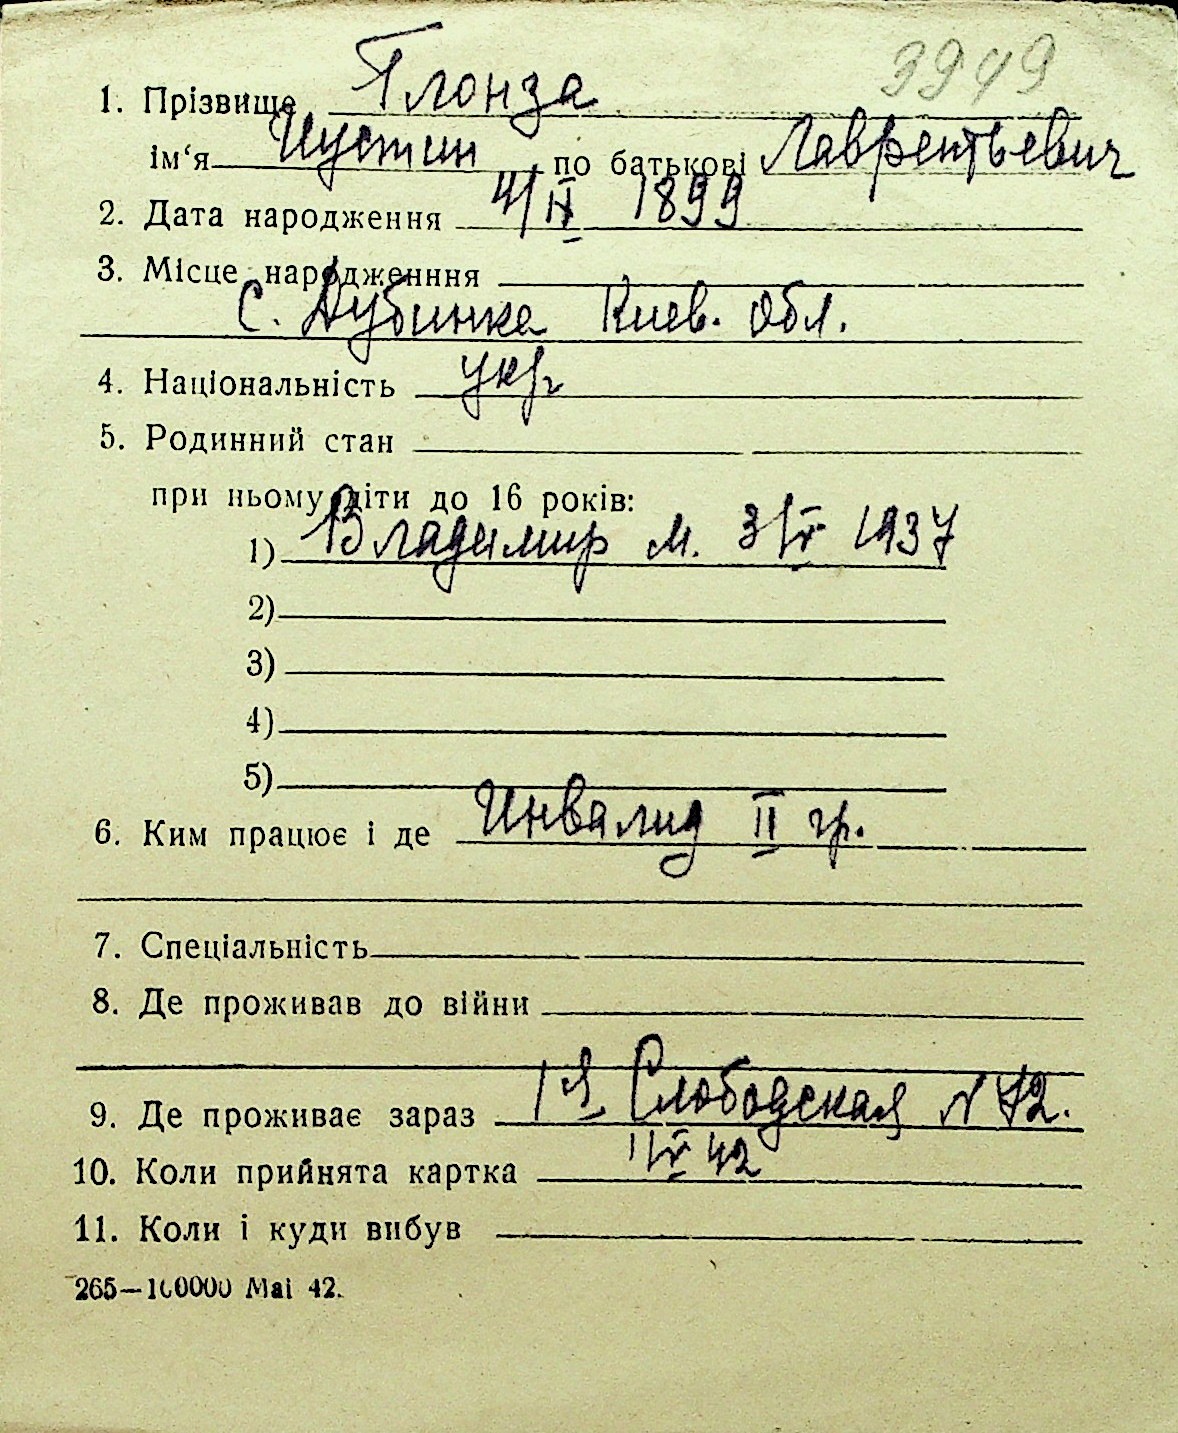 3949
1. Прізвище Глонза
ім‘я Иустин по батькові Лаврентьевич
2. Дата народження 4/II 1899
3. Місце народженння
с. Дубинка Киев. обл.
4. Національність укр
5. Родинний стан
при ньому діти до 16 років:
1) Владимир м. 3/V 1937
2)
3)
4)
5)
6. Ким працює і де Инвалид II гр.
7. Спеціальність
8. Де проживав до війни
9. Де проживає зараз 1я Слободская N 72.
10. Коли прийнята картка 1/V 42
11. Коли і куди вибув
265—100000 Mai 42.